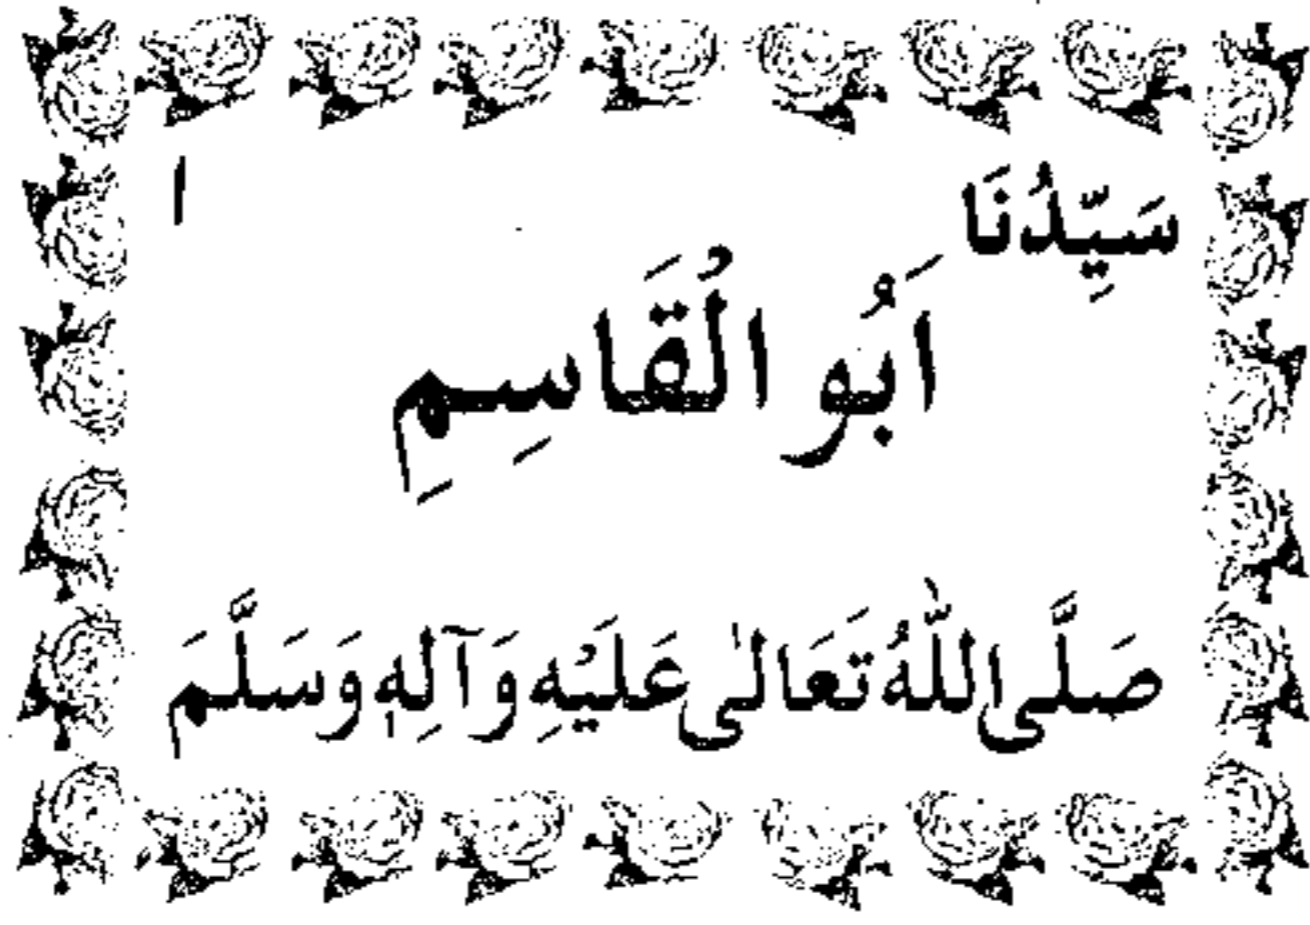 سَيِّدُنَا ١
اَبُو الْقَاسِمِ
صَلَّى اللّٰهُ تَعَالٰى عَلَيْهِ وَآلِهٖ وَسَلَّمَ